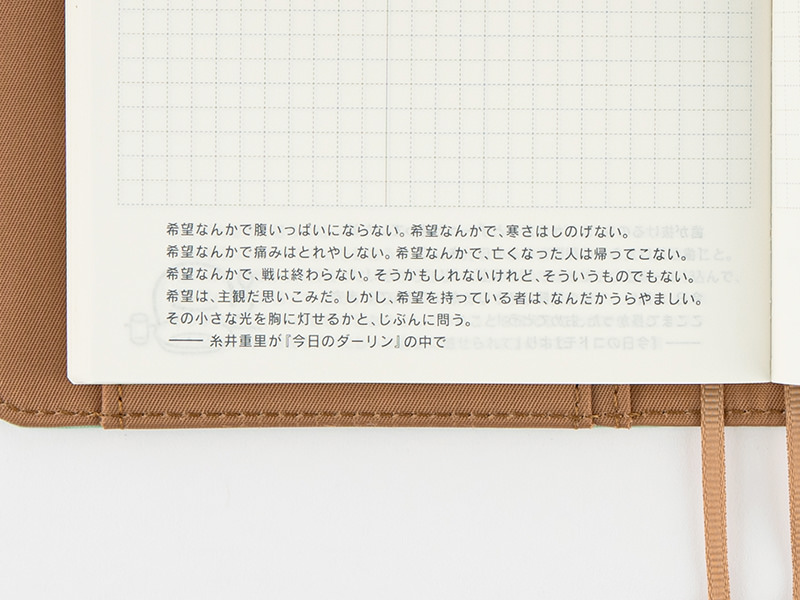 希望なんかで腹いっぱいにならない。希望なんかで、寒さはしのげない。
希望なんかで痛みはとれやしない。希望なんかで、亡くなった人は帰ってこない。
希望なんかで、戦は終わらない。そうかもしれないけれど、そういうものでもない。
希望は、主観だ思いこみだ。しかし、希望を持っている者は、なんだかうらやましい。
その小さな光を胸に灯せるかと、じぶんに問う。
—— 糸井重里が『今日のダーリン』の中で